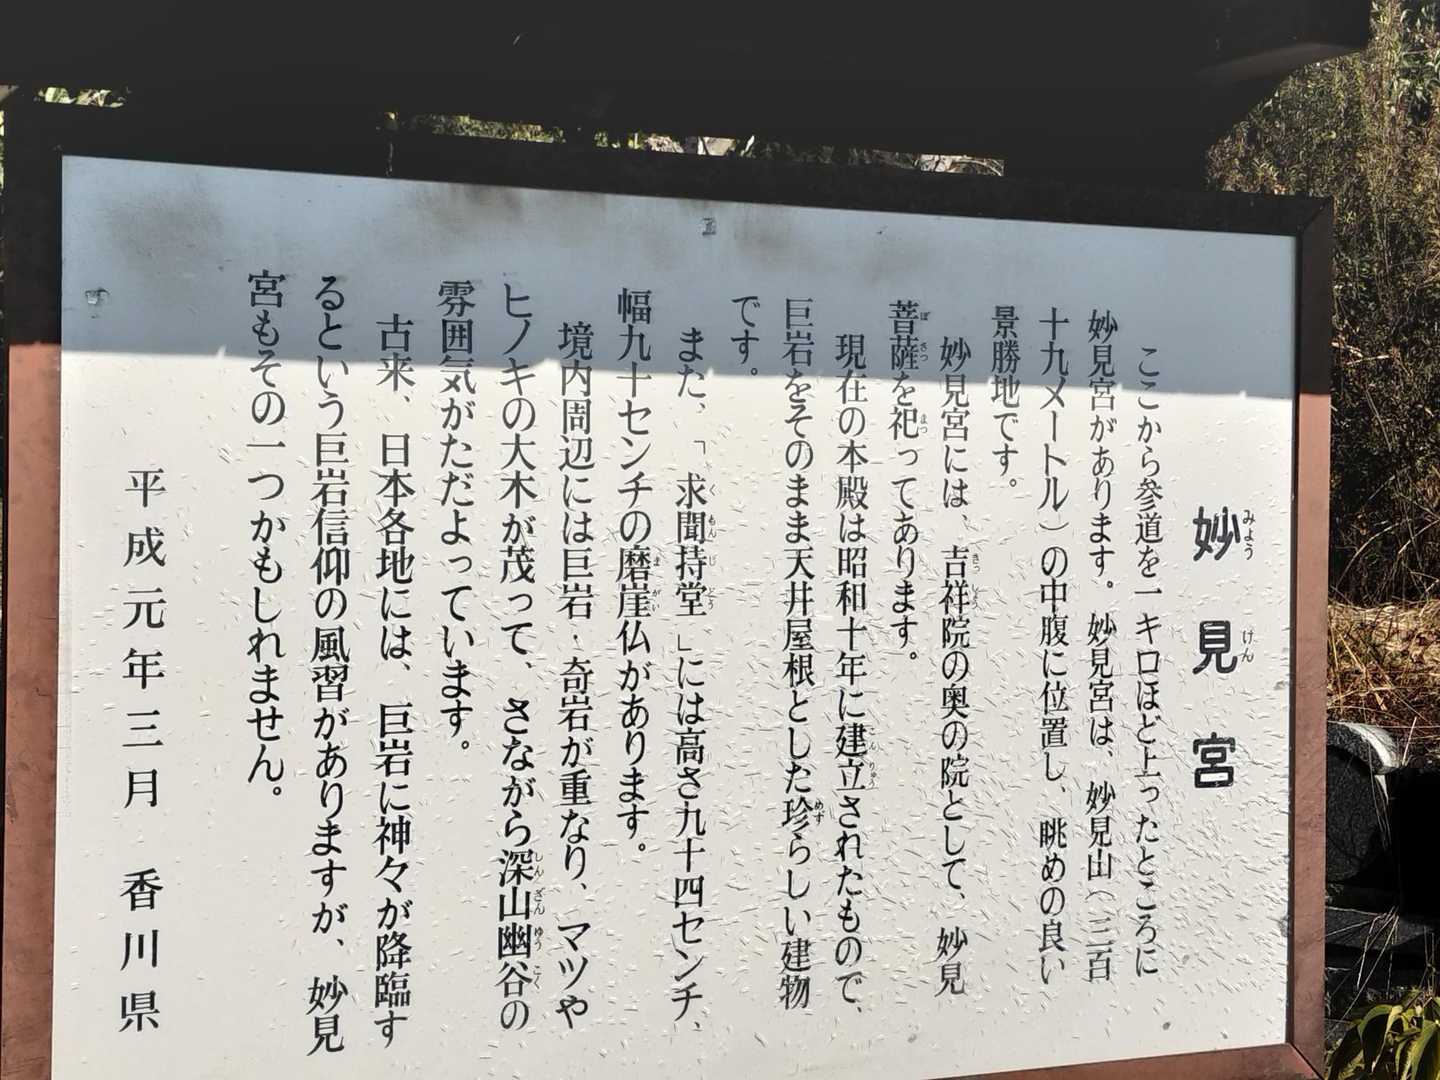 妙見宮
ここから参道を一キロほど上ったところに
妙見宮があります。妙見宮は、妙見山(三百
十九メートル)の中腹に位置し、眺めの良い
景勝地です。
妙見宮には、吉祥院の奥の院として、妙見
菩薩を祀ってあります。
現在の本殿は昭和十年に建立されたもので、
巨岩をそのまま天井屋根とした珍らしい建物
です。
また、「求聞持堂」には高さ九十四センチ、
幅九十センチの磨崖仏があります。
境内周辺には巨岩・奇岩が重なり、マツや
ヒノキの大木が茂って、さながら深山幽谷の
雰囲気がただよっています。
古来、日本各地には、巨岩に神々が降臨す
るという巨岩信仰の風習がありますが、妙見
宮もその一つかもしれません。
平成元年三月 香川県